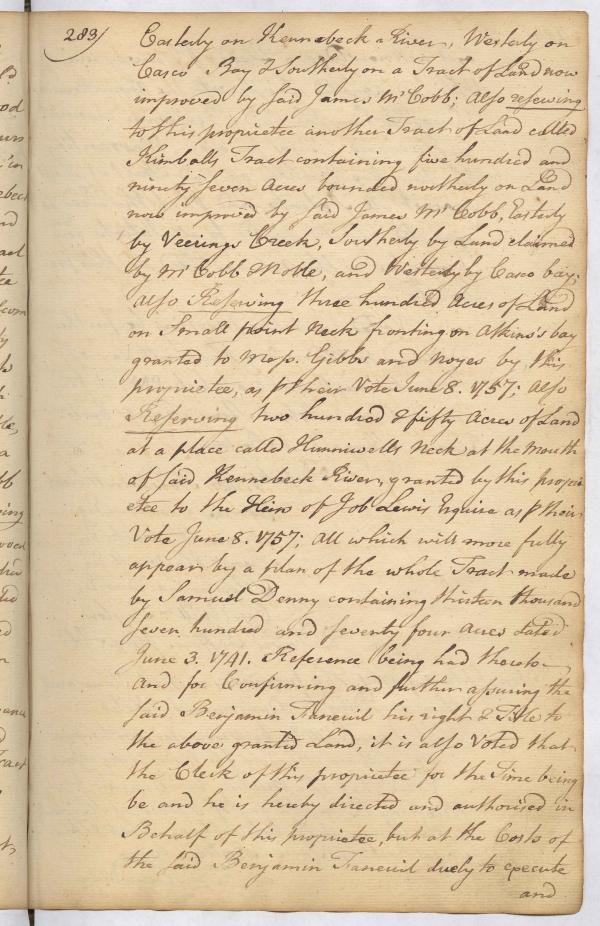 283/
Easterly on Kennebeck River, Westerly on
Casco Bay & Southerly on a Tract of Land now
improved by said James McCobb; Also reserving
to this proprietee another Tract of Land called
Kimballs Tract containing five hundred and
ninety seven Acres bounded northerly on Land
now improved by said James McCobb, Easterly
by Veerings Creek, Southerly by Land claimed
by McCobb & Noble, and Westerly by Casco bay;
Also Reserving three hundred Acres of Land
on Small point Neck fronting on Atkins's bay
granted to Mess. Gibbs and Noyes by this
proprietee, as p their Vote June 8. 1757; Also
Reserving two hundred & fifty Acres of Land
at a place called Hunniwells Neck at the Mouth
of said Kennebeck River, granted by this propri
etee to the Heirs of Job Lewis Esquire as p their
Vote June 8. 1757; All which will more fully
appear by a plan of the whole Tract made
by Samuel Denny containing thirteen thousand
seven hundred and seventy four Acres dated
June 3. 1741. Reference being had thereto
And for Confirming and further assuring the
said Benjamin Faneuil his right & Title to
the above granted Land, it is also Voted that
the Clerk of this proprietee for the Time being
be and he is hereby directed and authorised in
Behalf of this proprietee, but at the Costs of
the said Benjamin Faneuil duely to execute
and